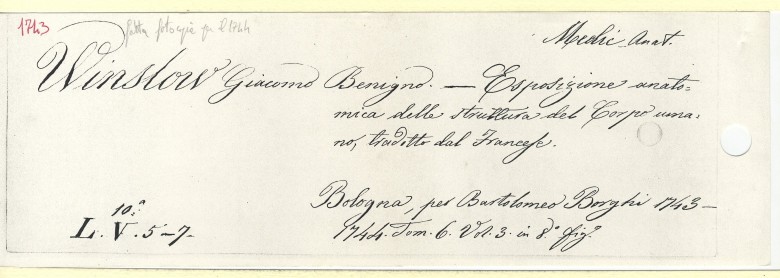 1743 fatta fotocopia per il 1744
Medic. Anat.
Winslow Giacomo Benigno. — Esposizione anato=
mica della struttura del Corpo uma=
no, tradotto dal Francese.
Bologna, per Bartolomeo Borghi 1743—
1744. Tom. 6. Vol. 3. in 8.° fig.°
10.a
L. V. 5-7.